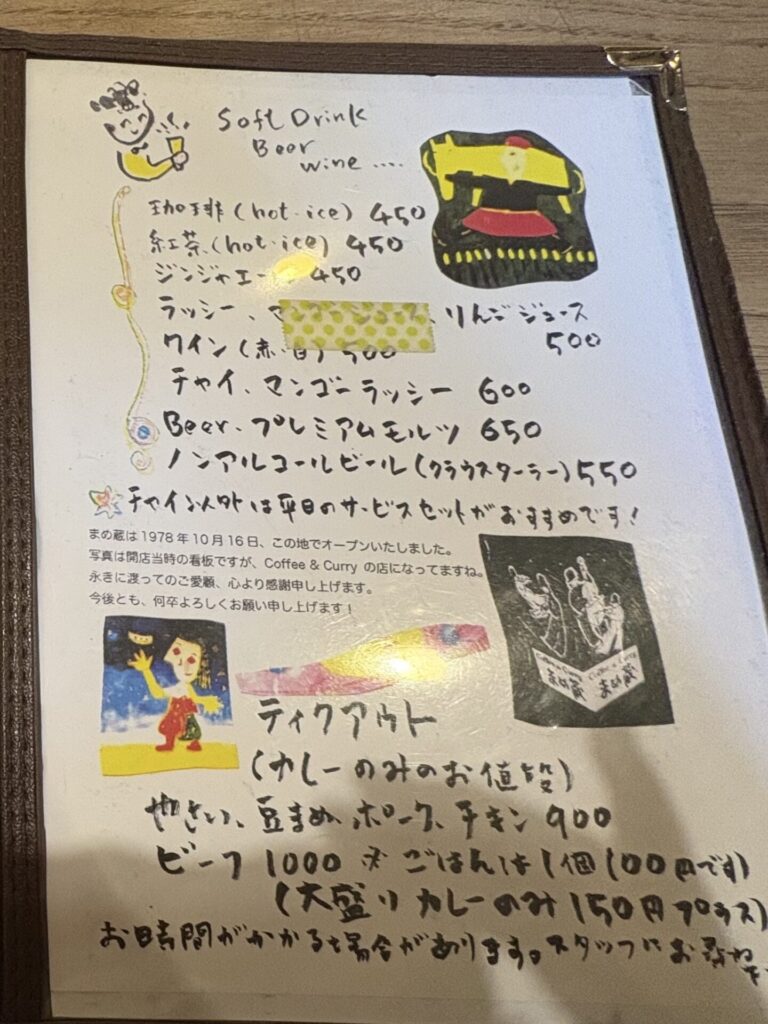 Soft Drink
Beer
wine ....
珈琲 (hot・ice) 450
紅茶 (hot・ice) 450
ジンジャエール 450
ラッシー、マンゴージュース、りんごジュース
500
ワイン (赤・白) 500
チャイ、マンゴーラッシー 600
Beer、プレミアムモルツ 650
ノンアルコールビール (クラウスターラー) 550
チャイ以外は平日のサービスセットがおすすめです!
まめ蔵は1978年10月16日、この地でオープンいたしました。
写真は開店当時の看板ですが、Coffee & Curry の店になってますね。
永きに渡ってのご愛顧、心より感謝申し上げます。
今後とも、何卒よろしくお願い申し上げます!
まめ蔵 まめ蔵
テイクアウト
(カレーのみのお値段)
やさい、豆まめ、ポーク、チキン 900
ビーフ 1000 ※ごはんは1個100円です)
(大盛りカレーのみ150円プラス)
お時間がかかる場合があります。スタッフにお尋ね